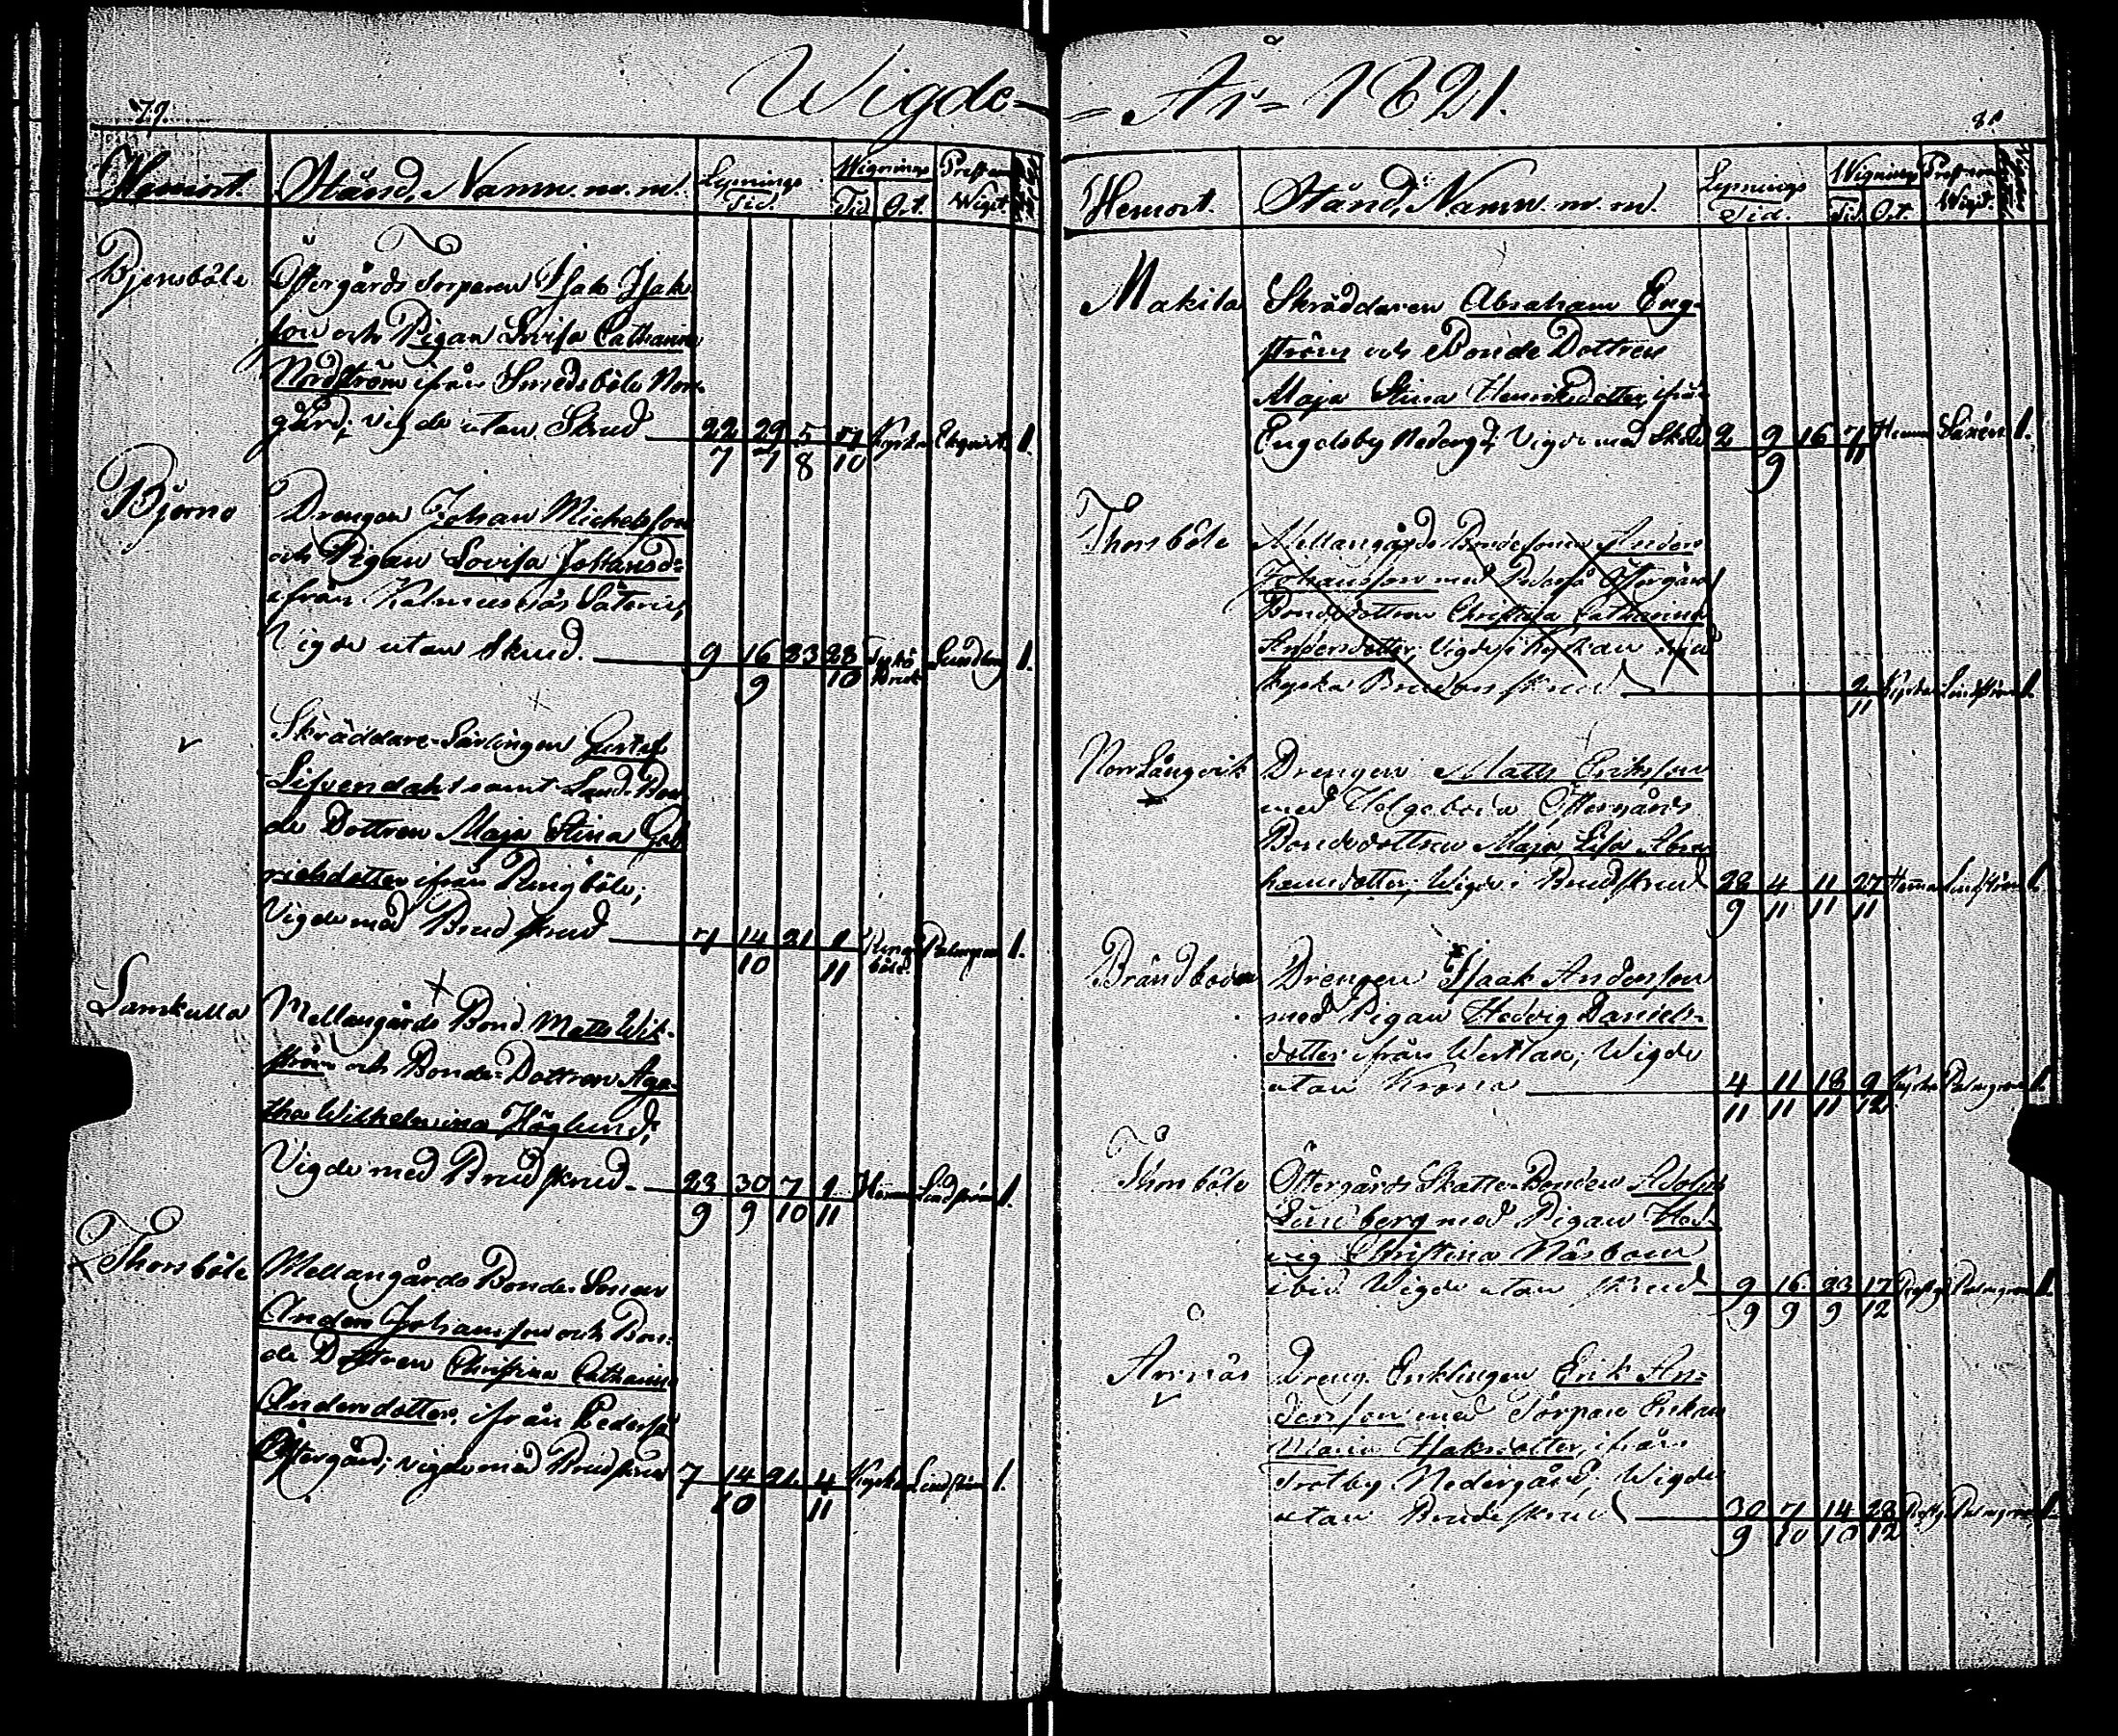 Wigde - År 1821.
79.
Hemort. Stånd, Namn. m. m. Lysnings Tid. Wignings Tid Ort. Prest som Wigit.
Bjensböle Östergårds Torparen Isak Isaks
son och Pigan Lovisa Catharina
Nordström ifrån Smedsböle Norr
gård; vigde utan Skrud 22/7 29/7 5/8 7/10 Kyrkan 1.
Bjernö Drengen Johan Michelsson
och Pigan Lovisa Johansd:
ifrån Kalmusnäs Säteri;
Vigde utan Skrud. 9 16/9 23 28/10 Lundberg 1.
Skräddare-Lärlingen Gustaf
Lifvendahl samt Land-Bon
de Dottren Maja Stina Gab
rielsdotter ifrån Pungböle;
Vigde med Brudskrud 7 14/10 21 1/11 Pung böle. Palmgren 1.
Lamkulla Mellangårds Bond. Matts Wik-
ström och Bonde-Dottren Aga-
tha Wilhelmina Höglund;
Vigde med Brudskrud 23/9 30/9 7/10 1/11 Hemma Lindström 1.
Thorsböle Mellangårds Bonde Sonen
Anders Johansson och Bon-
de Dottren Christina Catharina
Andersdotter, ifrån Pedersjö
Östergård; vigde med Brudskrud 7 14/10 21. 4/11 Kyrkan Lindström 1.
Hemort. Stånd, Namn. m. m. Lysnings Tid. Wignings Tid. Ort. Prest som Wigit.
Makila Skräddaren Abraham Eng-
ström och Bonde Dottren
Maja Stina Henriksdotter, ifrån
Engelsby Nederg:d; Vigde med Skrud 2 9/9 16 7/11 Hemma Saxén 1.
Thorsböle Mellangårds Bondesonen Anders
Johansson med Pedersjö Östergårds
Bondedottren Christina Catharina
Andersdotter, Vigde i Kyrkan med
Kyrkans Brudeskrud 2/11 Kyrkan Lindström 1.
Norr Långvik Drengen Matts Eriksson
med Helgeboda Östergårds
Bondedottren Maja Lisa Abra
hamsdotter; Wigde i Brudskrud 28/9 4/11 11/11 27/11 Hemma Lindström 1.
Brändboda Drengen Isaak Andersson
med Pigan Hedvig Daniels-
dotter ifrån Westlax; Wigde
utan Krona 4/11 11/11 18/11 9/12 Kyrkan Palmgren 1.
Thorsböle Östergårds Skatte-Bonden Adolph
Lundberg med Pigan Hed-
wig Christina Näsbom
ibid. Wigde utan skrud 9/9 16/9 23/9 17/12 Prestg. Palmgren 1.
Arnnäs Dreng. Enklingen Erik An-
dersson med Torpare Enkan
Maria Isaksdotter, ifrån
Trotby Nedergård; Wigde
utan Brudeskrud 30/9 7/10 14/10 28/12 Prestg. Palmgren 1.